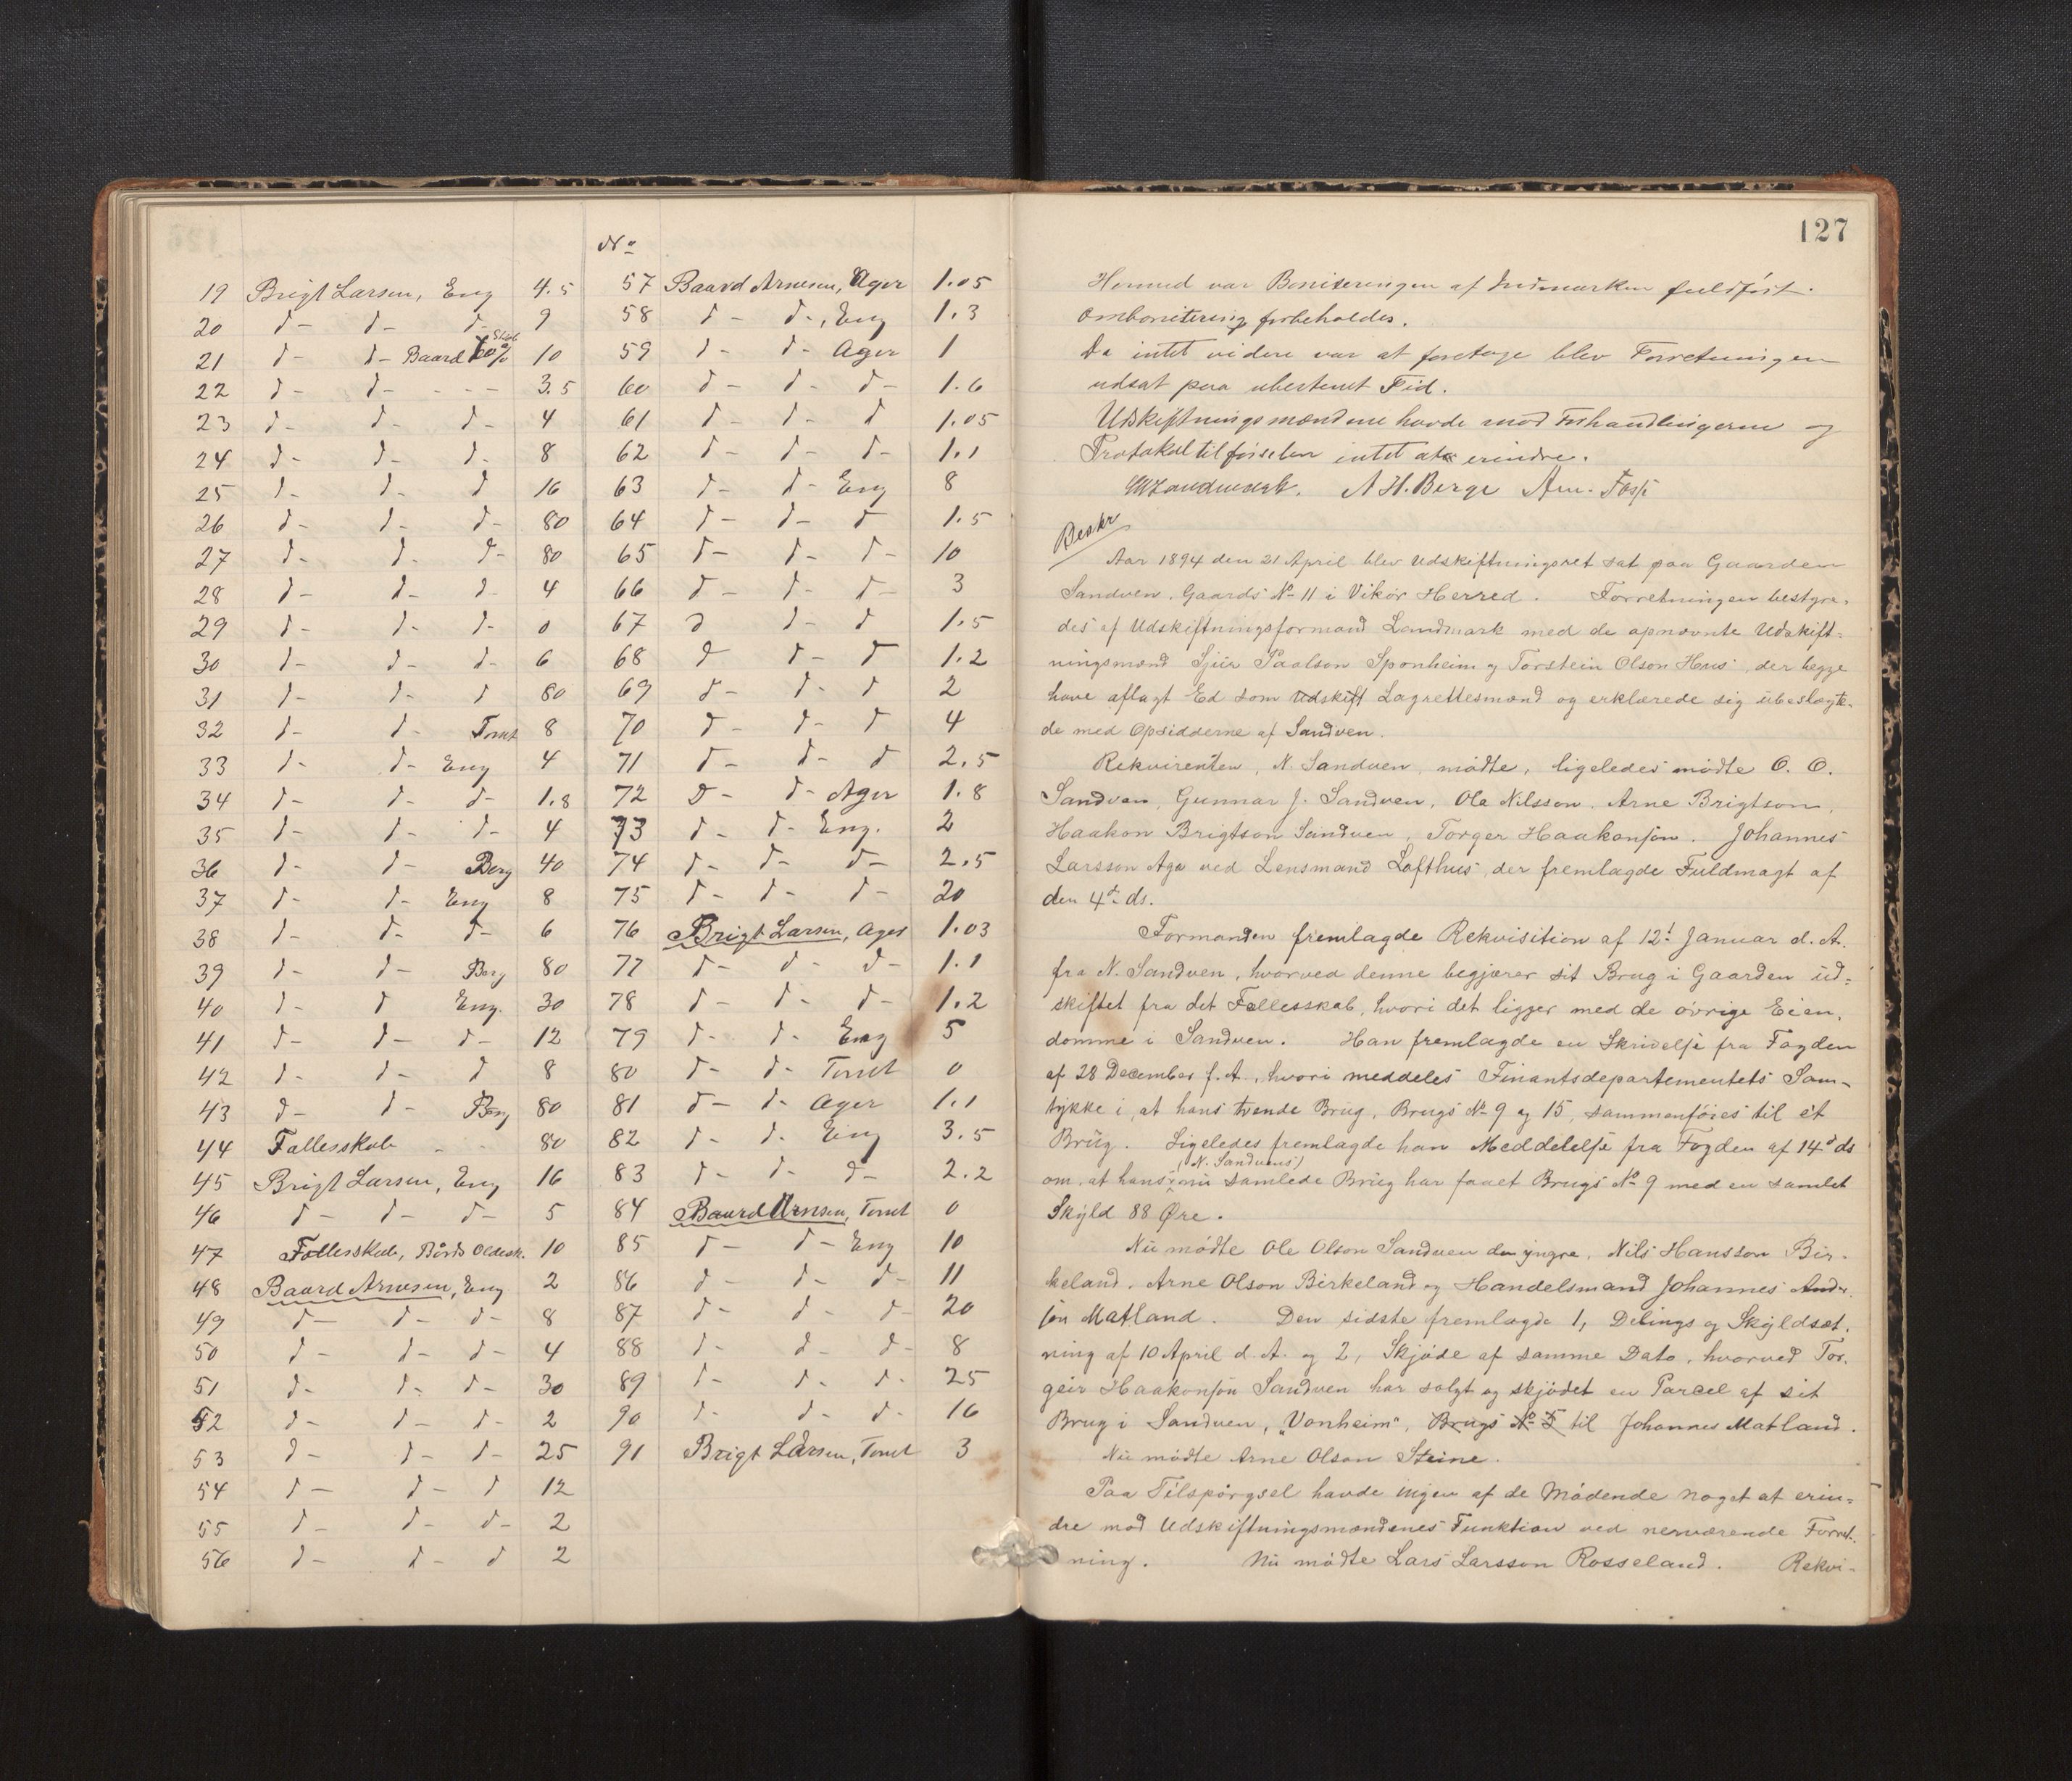 No
19 Brigt Larsen, Eng 4.5
20 d- d- d- 9
21 d- d- Baard 10
22 d- d- - - - 3.5
23 d- d- d- 4
24 d- d- d- 8
25 d- d- d 16
26 d- d- d- 80
27 d- d- d- 80
28 d- d- d- 4
29 d- d- d- 0
30 d- d- d- 6
31 d- d- d 80
32 d- d- Tomt 8
33 d- d- Eng 4
34 d- d- d- 1.8
35 d- d- d- 4
36 d- d- Berg 40
37 d- d- Eng 8
38 d- d- d- 6
39 d- d- Berg 80
40 d- d Eng. 30
41 d- d- d- 12
42 d- d- d 8
43 d- d- Berg 80
44 Fællesskab - - 80
45 Brigt Larsen, Eng 16
46 d- d- d- 5
47 Fællesskab, Bårds Oldesk. 10
48 Baard Arnesen, Eng 2
49 d- d- d- 8
50 d- d- d- 4
51 d- d- d- 30
52 d- d- d- 2
53 d- d- d- 25
54 d- d- d 12
55 d- d- d- 2
56 d- d- d 2
57 Baard Arnesen, Ager 1.05
58 d- d-, Eng 1.3
59 d- d- Ager 1
60 d- d- d- 1.6
61 d- d- d 1.05
62 d- d- d- 1.1
63 d- d- Eng 8
64 d- d- d 1.5
65 d- d- d- 10
66 d- d- d- 3
67 d d- d 1.5
68 d d- d 1.2
69 d- d- d 2
70 d- d- d 4
71 d- d- d 2.5
72 d- d- Ager 1.8
73 d- d- Eng. 2
74 d- d- d- 2.5
75 d- d- d- 20
76 Brigt Larsen, Ager 1.03
77 d- d- d- 1.1
78 d- d- d- 1.2
79 d- d- Eng 5
80 d- d- Tomt 0
81 d- d- Ager 1.1
82 d- d- Eng 3.5
83 d- d- d- 2.2
84 Baard Arnesen, Tomt 0
85 d- d- Eng 10
86 d- d- d- 11
87 d- d- d- 20
88 d- d- d- 8
89 d- d- d- 25
90 d- d- d- 16
91 Brigt Larsen, Tomt 3
127
Hermed var Boniteringen af Indmarken fuldført.
Ombonitering forbeholdes.
Da intet videre var at foretage blev Forretningen
udsat paa ubestemt Tid.
Udskiftningsmændene havde mod Forhandlingerne og
Protokoltilførselen intet at erindre.
Landmark. A H. Berge Arn. Fosse
Beskr
Aar 1894 den 21 April blev Udskiftningsret sat paa Gaarden
Sandven, Gaards No 11 i Vikør Herred. Forretningen bestyre-
des af Udskiftningsformand Landmark med de opnævnte Udskift-
ningsmænd Sjur Paalson Sponheim og Torstein Olson Hus, der begge
have aflagt Ed som Udskift Lagrettesmænd og erklærede sig ubeslægte-
de med Opsidderne af Sandven.
Rekvirenten, N. Sandven, mødte, ligeledes mødte O. O.
Sandven, Gunnar J. Sandven, Ola Nilsson, Arne Brigtson,
Haakon Brigtson Sandven, Torger Haakonson. Johannes
Larsson Aga ved Lensmand Lofthus, der fremlagde Fuldmagt af
den 4de ds.
Formanden fremlagde Rekvisition af 12t Januar d. A.
fra N. Sandven, hvorved denne begjærer sit Brug i Gaarden ud-
skiftet fra det Fællesskab, hvori det ligger med de øvrige Eien-
domme i Sandven. Han fremlagde en Skrivelse fra Fogden
af 28 December f. A., hvori meddeles Finantsdepartementets Sam-
tykke i, at hans tvende Brug, Brugs No 9 og 15, sammenføies til ét
Brug. Ligeledes fremlagde han Meddelelse fra Fogden af 14d ds
om, at hans (N. Sandvens) nu samlede Brug har faaet Brugs No 9 med en samlet
Skyld 88 Øre.
Nu mødte Ole Olson Sandven den yngre, Nils Hansson Bir-
keland, Arne Olson Birkeland og Handelsmand Johannes Ander-
son Matland. Den sidste fremlagde 1, Delings og Skyldsæt-
ning af 10 April d. A. og 2, Skjøde af samme Dato, hvorved Tor-
geir Haakonson Sandven har solgt og skjødet en Parcel af sit
Brug i Sandven, "Vonheim", Brugs No 5 til Johannes Matland.
Nu mødte Arne Olson Steine.
Paa Tilspørgsel havde ingen af de Mødende noget at erin-
dre mod Udskiftningsmændenes Funktion ved nerværende Forret-
ning. Nu mødte Lars Larsson Rosseland. Rekvi-